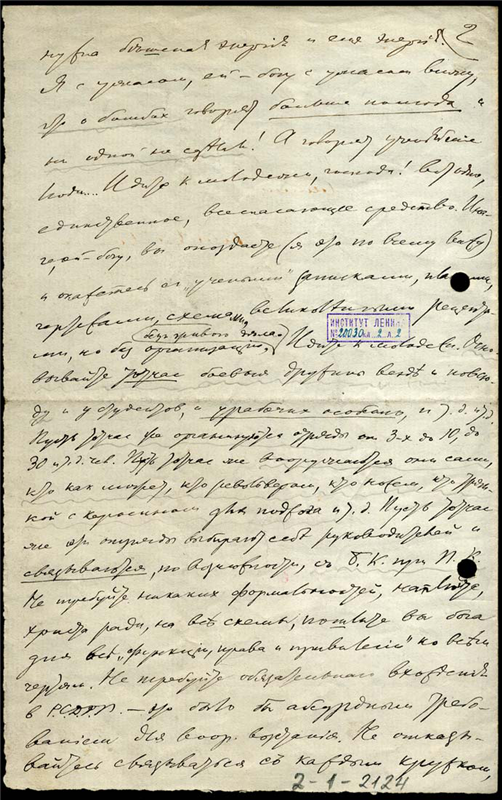 2
нужна бешеная энергия и еще энергия.
Я с ужасом, ей-богу с ужасом вижу,
что о бомбах говорят больше полгода и
ни одной не сделали! А говорят ученейшие
люди... Идите к молодежи, господа! Вот одно,
единственное, всеспасающее средство. Иначе,
ей-богу, вы опоздаете (я это по всему вижу)
и окажетесь с "учеными" записками, планами,
чертежами, схемами, великолепными рецептами,
но без организации, без живого дела.
ИНСТИТУТ ЛЕНИНА
№ 20030 л. 2
Идите к молодежи. Осно-
вывайте тотчас боевые дружины везде и повсю-
ду и у студентов, и у рабочих особенно, и т. д. и т. д.
Пусть тотчас же организуются отряды от 3-х до 10, до
30 и т. д. чел. Пусть тотчас же вооружаются они сами,
кто как может, кто револьвером, кто ножом, кто тряп-
кой с керосином для поджога и т. д. Пусть тотчас
же эти отряды выбирают себе руководителей и
связываются, по возможности, с Б. К. при П. К.
Не требуйте никаких формальностей, наплюйте,
христа ради, на все схемы, пошлите вы бога
для все "функции, права и привилегии" ко всем
чертям. Не требуйте обязательного вхождения
в Р.С.Д.Р.П. — это было бы абсурдным требо-
ванием для воор. восстания. Не отказы-
вайтесь связываться с каждым кружком,
2-1-2124